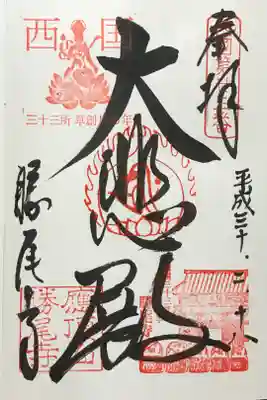 奉拝
平成三十、二、十八
大悲殿
勝尾寺
西国
三十三所 草創1300年
應頂山
勝尾寺